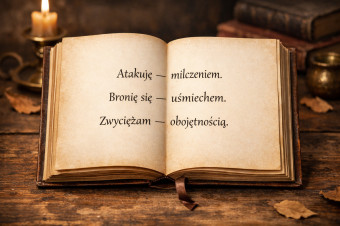 Atakuję — milczeniem.
Bronię się — uśmiechem.
Zwyciężam — obojętnością.